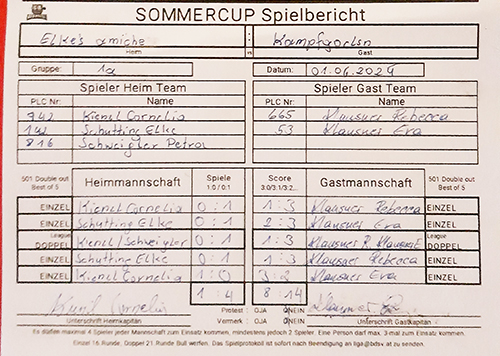 SOMMERCUP Spielbericht
Elke's amiche Kampfgorlsn
Heim Gast
Gruppe: 1a Datum: 01.06.2024
Spieler Heim Team Spieler Gast Team
PLC Nr: Name PLC Nr: Name
742 Kienzl Cornelia 665 Klausner Rebecca
142 Schutting Elke 53 Klausner Eva
816 Schweigler Petra
501 Double out Best of 5 Heimmannschaft Spiele 1:0 / 0:1 Score 3:0/3:1/3:2... Gastmannschaft 501 Double out Best of 5
EINZEL Kienzl Cornelia 0:1 1:3 Klausner Rebecca EINZEL
EINZEL Schutting Elke 0:1 2:3 Klausner Eva EINZEL
League DOPPEL Kienzl/Schweigler 0:1 1:3 Klausner R. Klausner E League DOPPEL
EINZEL Schutting Elke 0:1 1:3 Klausner Rebecca EINZEL
EINZEL Kienzl Cornelia 1:0 3:2 Klausner Eva EINZEL
1:4 8:14
Protest : OJA ONEIN
Unterschrift Heimkapitän Vermerk : OJA ONEIN Unterschrift Gastkapitän
Es dürfen maximal 4 Spieler jeder Mannschaft zum Einsatz kommen, mindestens jedoch 2 Spieler. Eine Person darf max. 3-mal zum Einsatz kommen.
Einzel 16 Runde, Doppel 21 Runde Bull werfen. Das Spielprotokoll ist sofort nach Beendigung an liga@bdsv.at zu senden.